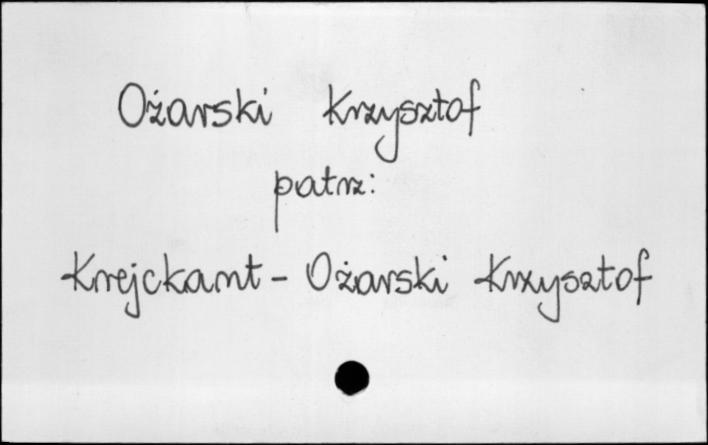 Ożarski Krzysztof
patrz:
Krejckant - Ożarski Krzysztof